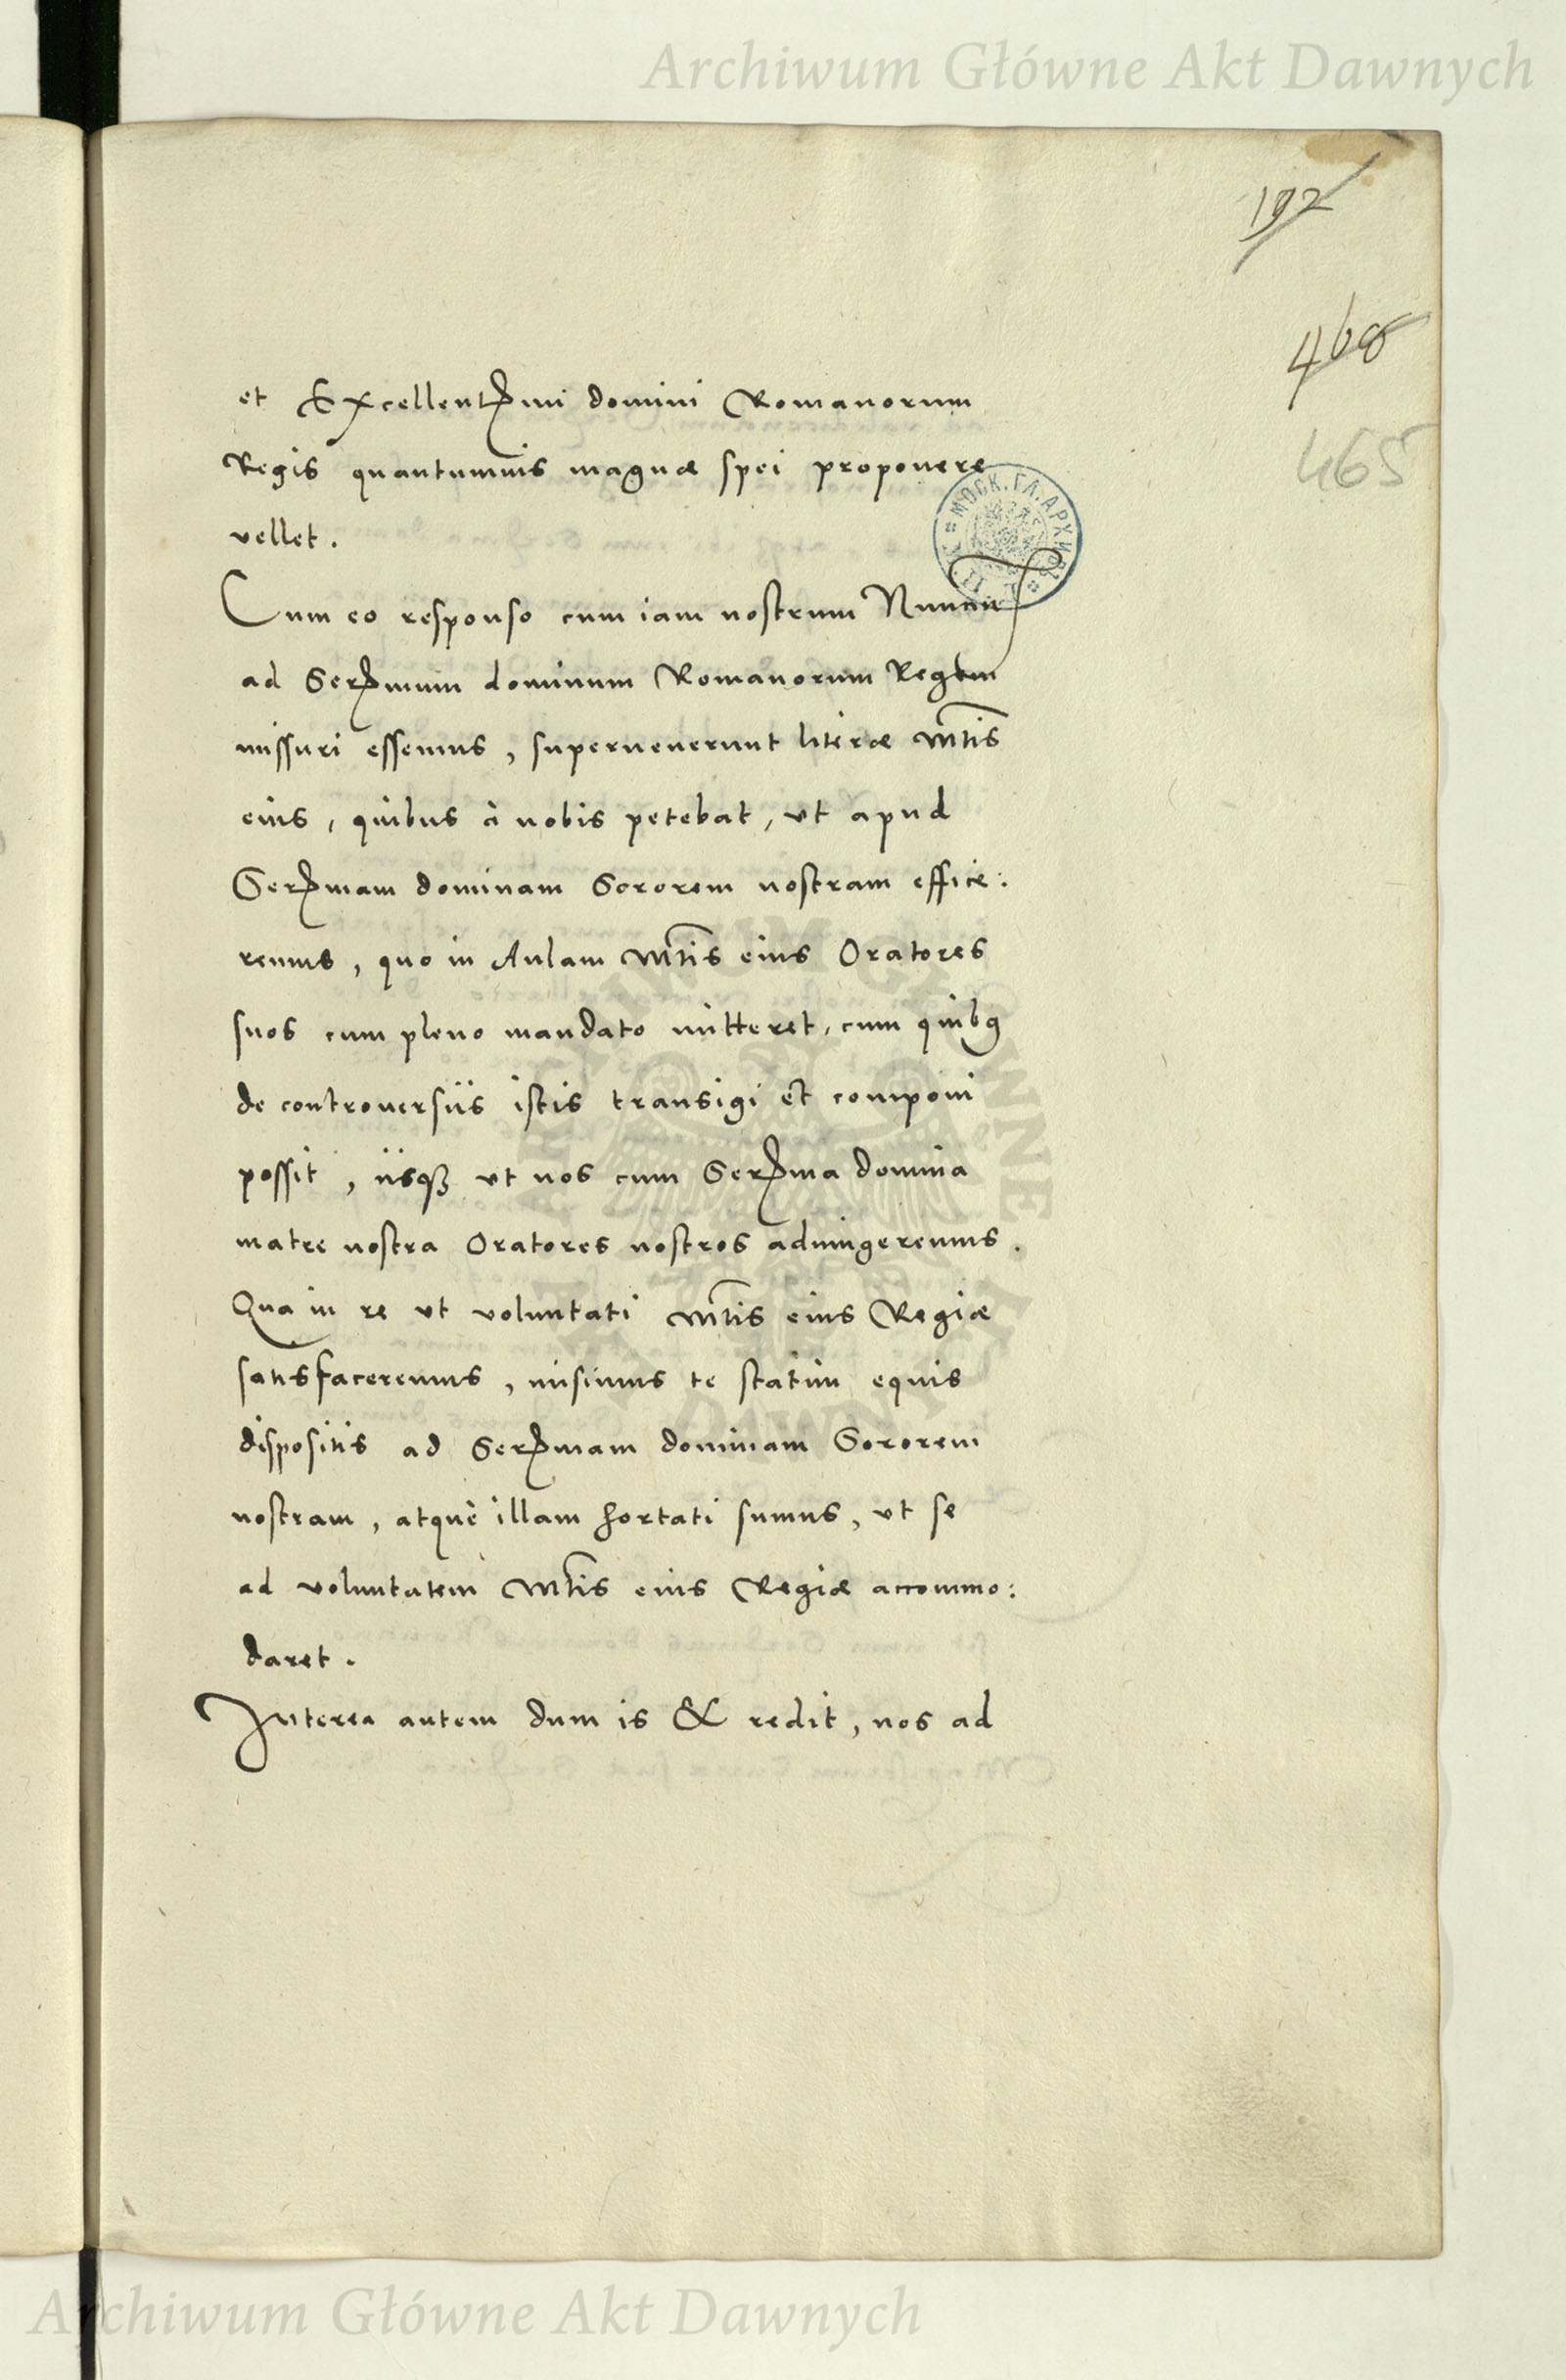 Archiwum Główne Akt Dawnych
192
468
465
et Excellentmi domini Romanorum
Regis quantumuis magnæ spei proponere
vellet.
МОСК. ГЛ. АРХИВЪ
Cum eo responso cum iam nostrum
ad Sermum dominum Romanorum Regem
missuri essemus, superuenerunt literæ Mtis
eius, quibus à nobis petebat, vt apud
Sermam dominam Sororem nostram effice:
remus, quo in Aulam Mtis eius Oratores
suos cum pleno mandato mitteret, cum quibꝰ
de controuersiis istis transigi et componi
possit, iisqꝫ vt nos cum Serma domina
matre nostra Oratores nostros adiungeremus.
Qua in re vt voluntati Mtis eius Regiæ
satisfaceremus, misimus te statim equis
dispositis ad Sermam dominam Sororem
nostram, atque illam hortati sumus, vt se
ad voluntatem Mtis eius Regiæ accommo:
daret.
Interea autem dum is & redit, nos ad
Archiwum Główne Akt Dawnych